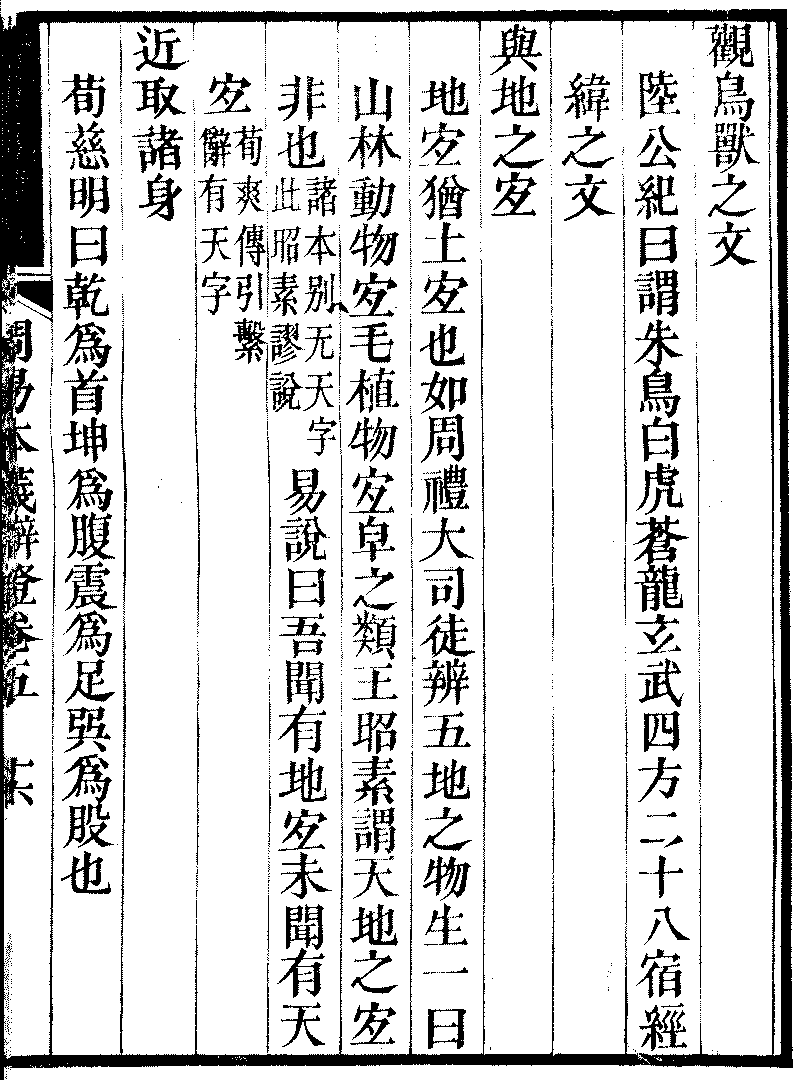 觀鳥獸之文
陸公紀曰謂朱鳥白虎蒼龍玄武四方二十八宿經
緯之文
與地之宐
地宐猶土宐也如周禮大司徒辨五地之物生一曰
山林動物宐毛植物宐皁之類王昭素謂天地之宐
非也諸本别无天字此昭素謬說易說曰吾聞有地宐未聞有天
宐荀爽傳引繫辭有天字
近取諸身
荀慈明曰乾爲首坤爲腹震爲足巺爲股也
周易本義辯證卷五 十六